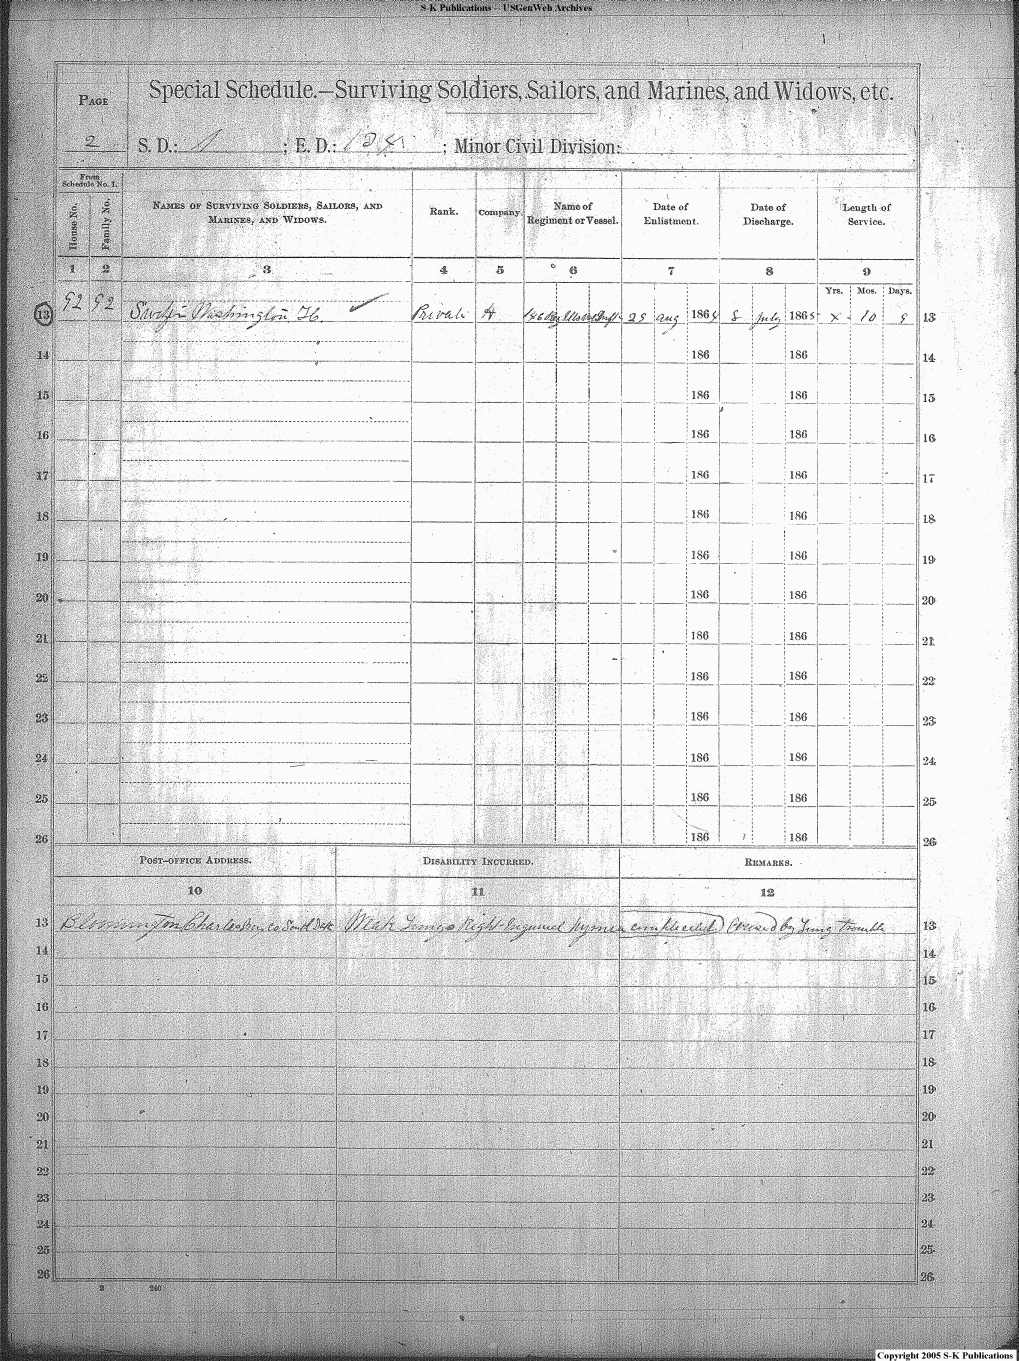 S-K Publications – USGenWeb Archives
Special Schedule.—Surviving Soldiers, Sailors, and Marines, and Widows, etc.
PAGE
2
S. D.: 1 ; E. D.: ; Minor Civil Division:
From Schedule No. 1.
House No.
Family No.
NAMES OF SURVIVING SOLDIERS, SAILORS, AND MARINES, AND WIDOWS.
Rank.
Company.
Name of Regiment or Vessel.
Date of Enlistment.
Date of Discharge.
Length of Service.
1 2 3 4 5 6 7 8 9
Yrs. Mos. Days.
13 92 92 Washington Private A 146 aug 1864 8 July 1865 x 10 9 13
14 186 186 14
15 186 186 15
16 186 186 16
17 186 186 17
18 186 186 18
19 186 186 19
20 186 186 20
21 186 186 21
22 186 186 22
23 186 186 23
24 186 186 24
25 186 186 25
26 186 186 26
POST-OFFICE ADDRESS.
DISABILITY INCURRED.
REMARKS.
10 11 12
13 Bloomington Charles South Weak Lungs Right caused by Lung trouble 13
14 14
15 15
16 16
17 17
18 18
19 19
20 20
21 21
22 22
23 23
24 24
25 25
26 26
2 240
Copyright 2005 S-K Publications